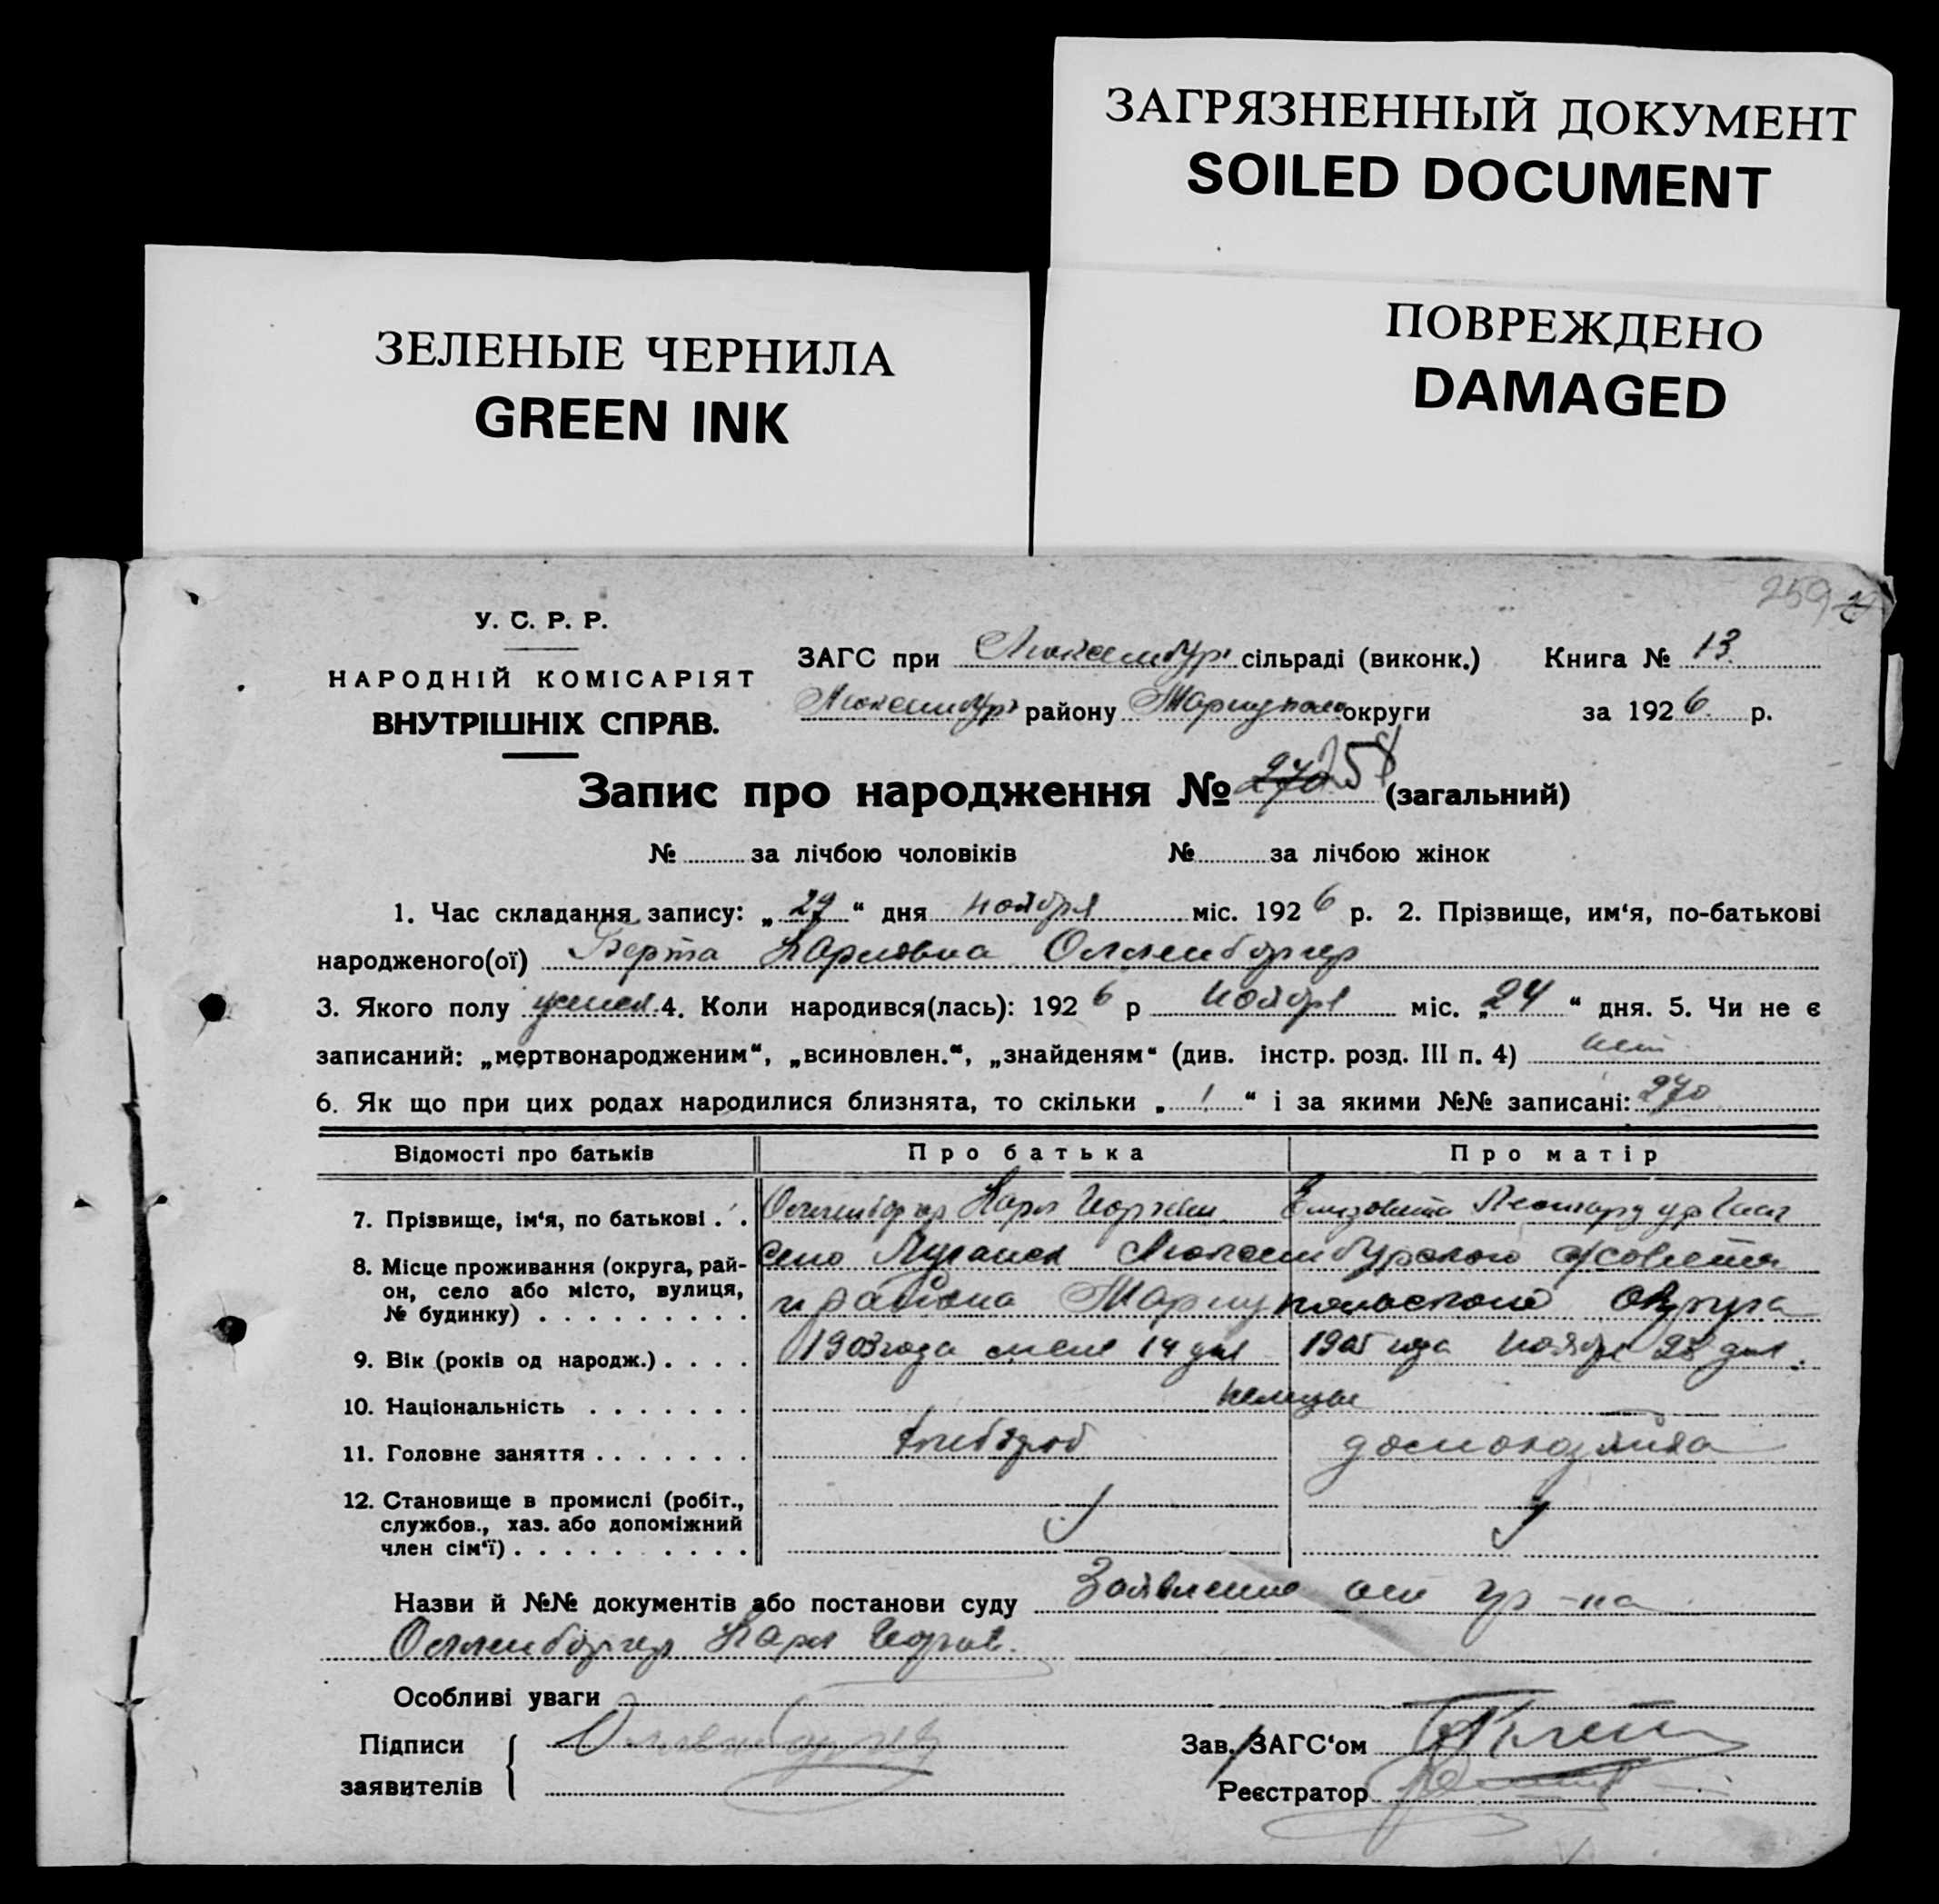 ЗАГРЯЗНЕННЫЙ ДОКУМЕНТ
SOILED DOCUMENT
ЗЕЛЕНЫЕ ЧЕРНИЛА
GREEN INK
ПОВРЕЖДЕНО
DAMAGED
259
У. С. Р. Р.
НАРОДНІЙ КОМІСАРІЯТ
ВНУТРІШНІХ СПРАВ.
ЗАГС при Люксембур. сільраді (виконк.) Книга № 13
Люксембур. району Мариуполь округи за 1926 р.
Запис про народження № 270 258 (загальний)
№ за лічбою чоловіків № за лічбою жінок
1. Час складання запису: „29“ дня ноября міс. 1926 р. 2. Прізвище, им‘я, по-батькові
народженого(ої) Берта Карловна Олленбергер
3. Якого полу женск. 4. Коли народився(лась): 1926 р ноября міс. „24“ дня. 5. Чи не є
записаний: „мертвонародженим“, „всиновлен.“, „знайденям“ (див. інстр. розд. III п. 4) нет
6. Як що при цих родах народилися близнята, то скільки „1“ і за якими №№ записані: 270
Відомості про батьків Про батька Про матір
7. Прізвище, ім‘я, по батькові . . Олленбергер Карл Георгиев. Елизавета Леонард
8. Місце проживання (округа, рай- село Люксембургского с/совета
он, село або місто, вулиця, и района Мариупольской округа
№ будинку) . . . . . . . . .
9. Вік (років од народж.) . . . . 1903 года 14 дня 1905 года ноября 28 дня.
10. Національність . . . . . . . немцы
11. Головне заняття . . . . . . . хлебороб домохозяйка
12. Становище в промислі (робіт.,
службов., хаз. або допоміжний
член сім‘ї) . . . . . . . . . .
Назви й №№ документів або постанови суду Заявление от гр-на
Олленбергер Карл Георгиев.
Особливі уваги
Підписи Зав. ЗАГС‘ом
заявителів Реєстратор